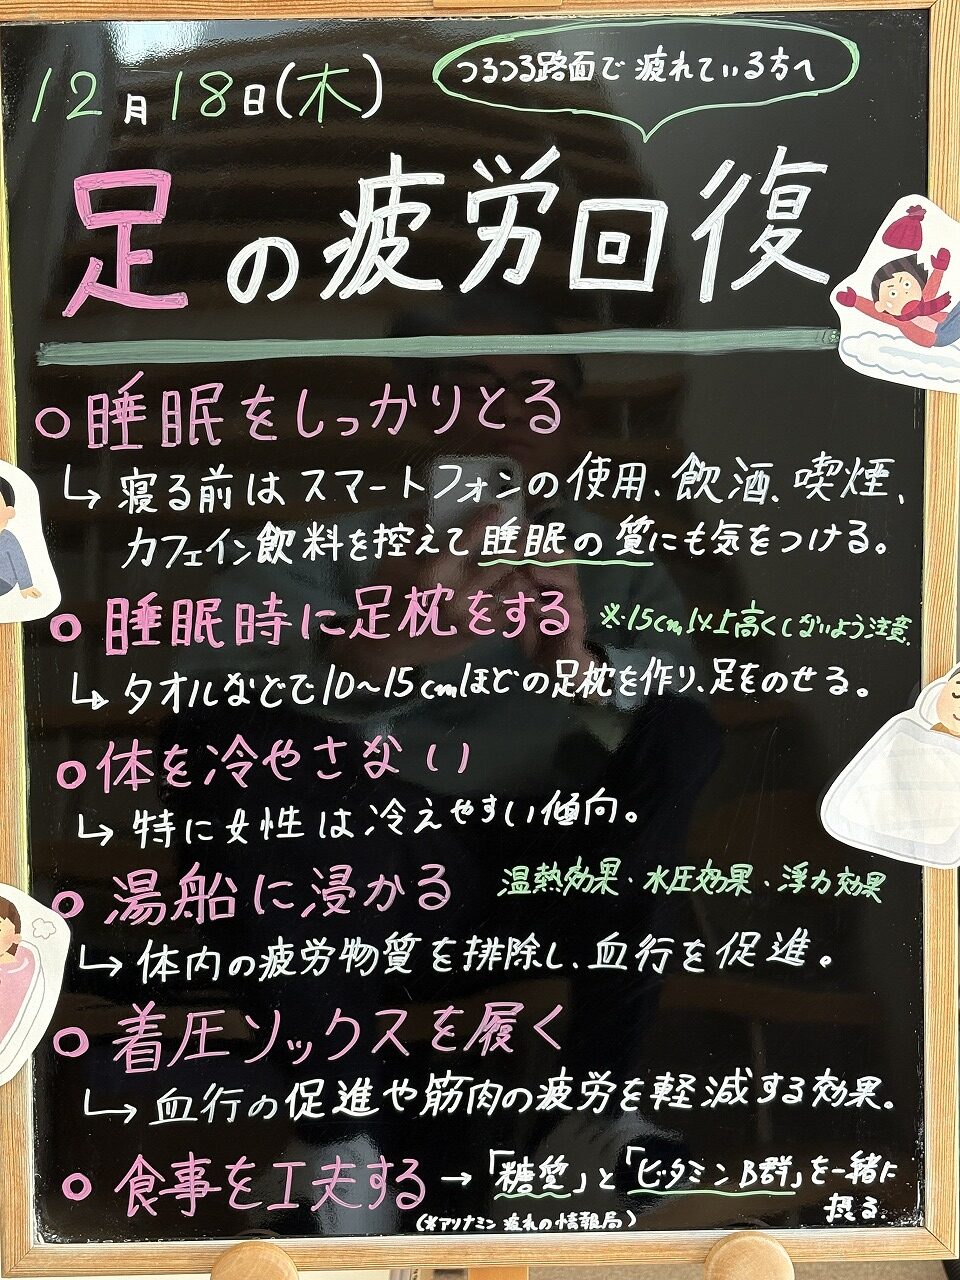 12月18日(木)
つるつる路面で疲れている方へ
足の疲労回復
○睡眠をしっかりとる
↳寝る前はスマートフォンの使用、飲酒、喫煙、
カフェイン飲料を控えて睡眠の質にも気をつける。
○睡眠時に足枕をする ※15cm以上高くしないよう注意
↳タオルなどで10〜15cmほどの足枕を作り、足をのせる。
○体を冷やさない
↳特に女性は冷えやすい傾向。
○湯船に浸かる 温熱効果・水圧効果・浮力効果
↳体内の疲労物質を排除し、血行を促進。
○着圧ソックスを履く
↳血行の促進や筋肉の疲労を軽減する効果。
○食事を工夫する→「糖質」と「ビタミンB群」を一緒に
摂る。
(※アリナミン疲れの情報局)